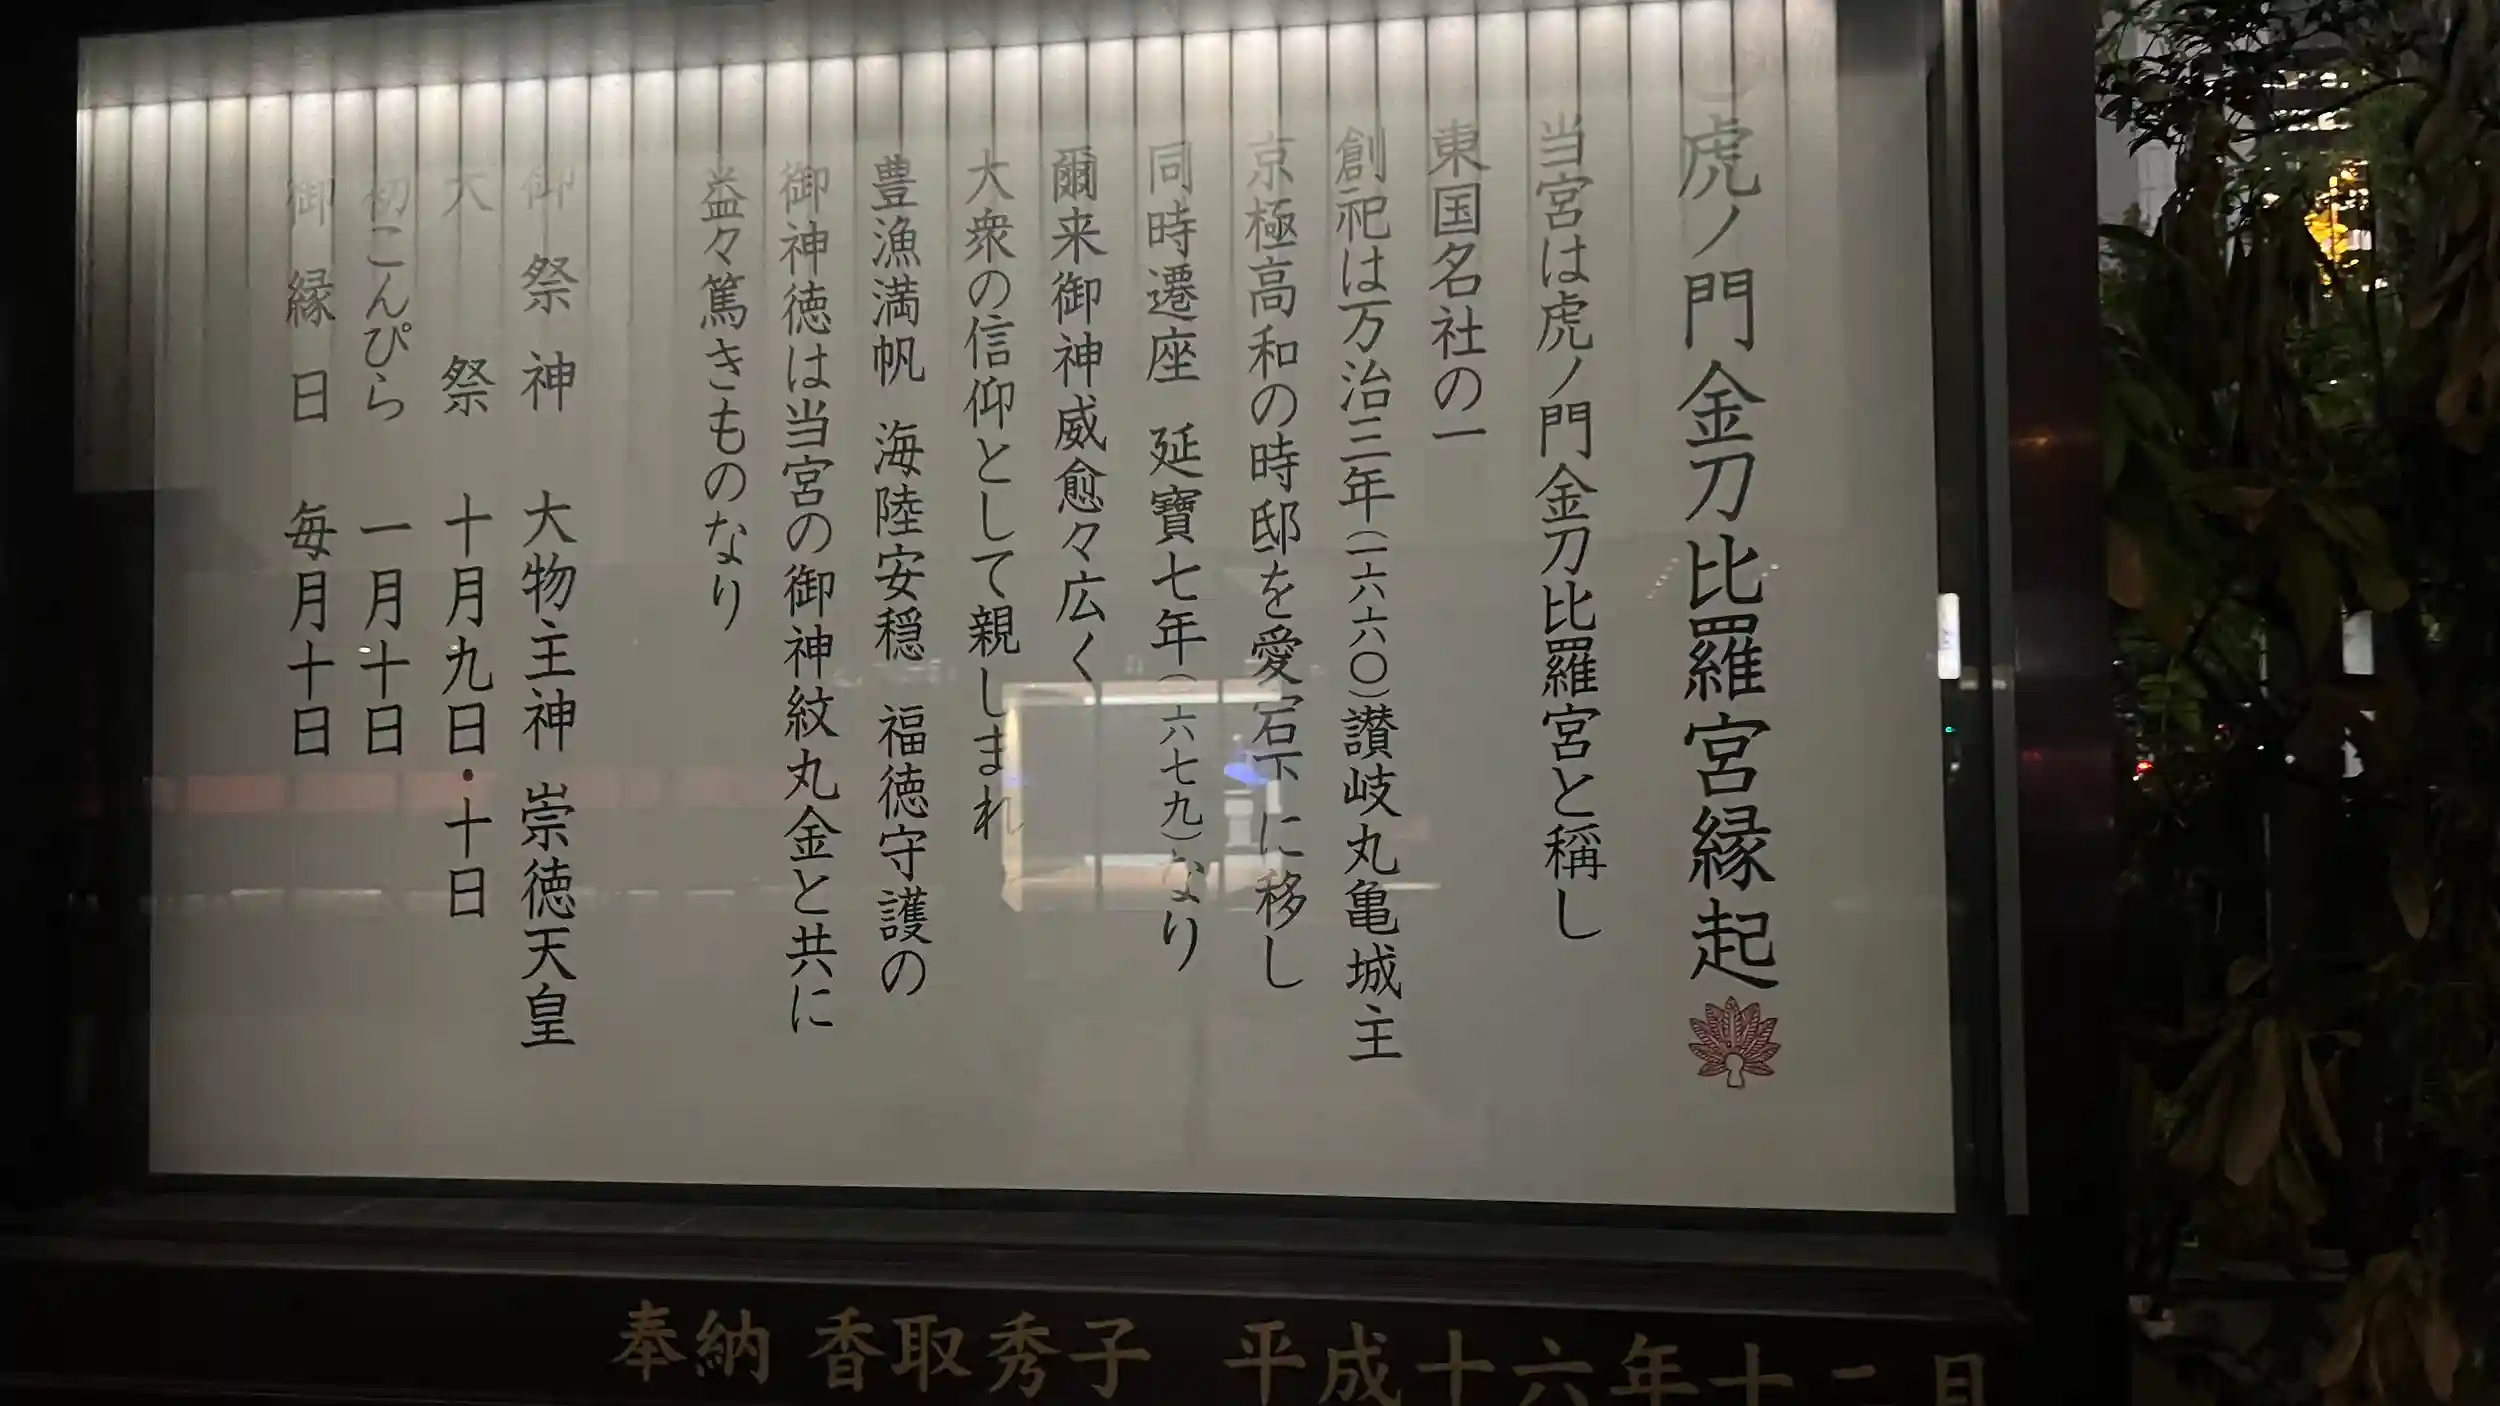 虎ノ門金刀比羅宮縁起
当宮は虎ノ門金刀比羅宮と稱し
東国名社の一
創祀は万治三年(一六六〇)讃岐丸亀城主
京極高和の時邸を愛宕下に移し
同時遷座 延寶七年(一六七九)なり
爾来御神威愈々広く
大衆の信仰として親しまれ
豊漁満帆 海陸安穏 福徳守護の
御神徳は当宮の御神紋丸金と共に
益々篤きものなり
御祭神 大物主神 崇徳天皇
大祭 十月九日・十日
初こんぴら 一月十日
御縁日 毎月十日
奉納 香取秀子 平成十六年十二月